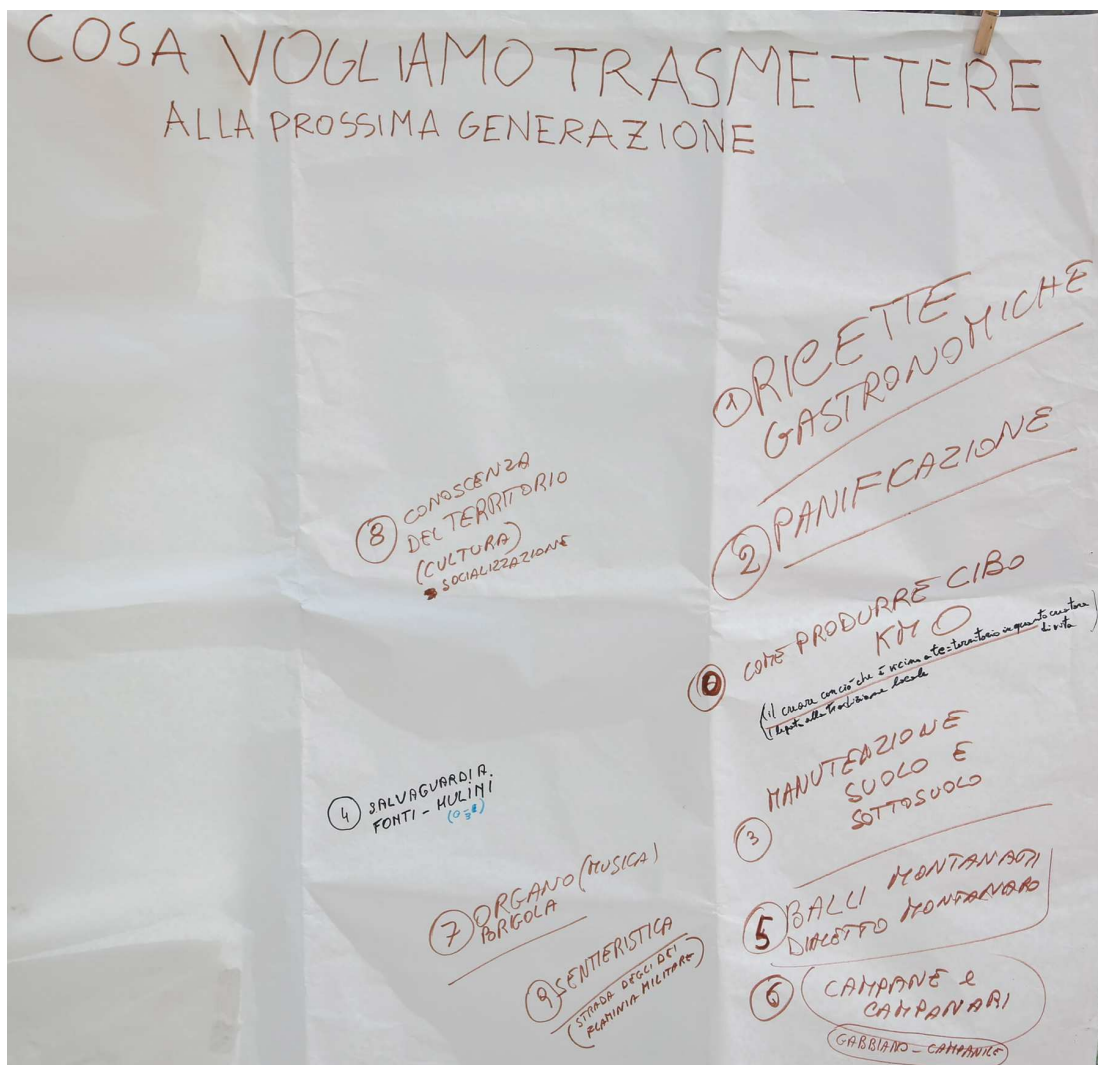 COSA VOGLIAMO TRASMETTERE
ALLA PROSSIMA GENERAZIONE
1 RICETTE
GASTRONOMICHE
2 PANIFICAZIONE
0 COME PRODURRE CIBO
KM 0
(il creare con ciò che è vicino a te = territorio in quanto creatore
di vita)
legata alla tradizione locale
MANUTENZIONE
SUOLO E
SOTTOSUOLO
3
5 BALLI MONTANARI
DIALETTO MONTANARO
6 CAMPANE e
CAMPANARI
GABBIANO - CAMPANILE
8 CONOSCENZA
DEL TERRITORIO
(CULTURA)
SOCIALIZZAZIONE
4 SALVAGUARDIA
FONTI - MULINI
7 ORGANO (MUSICA)
9 SENTIERISTICA
(STRADA DEGLI DEI
FLAMINIA MILITARE)